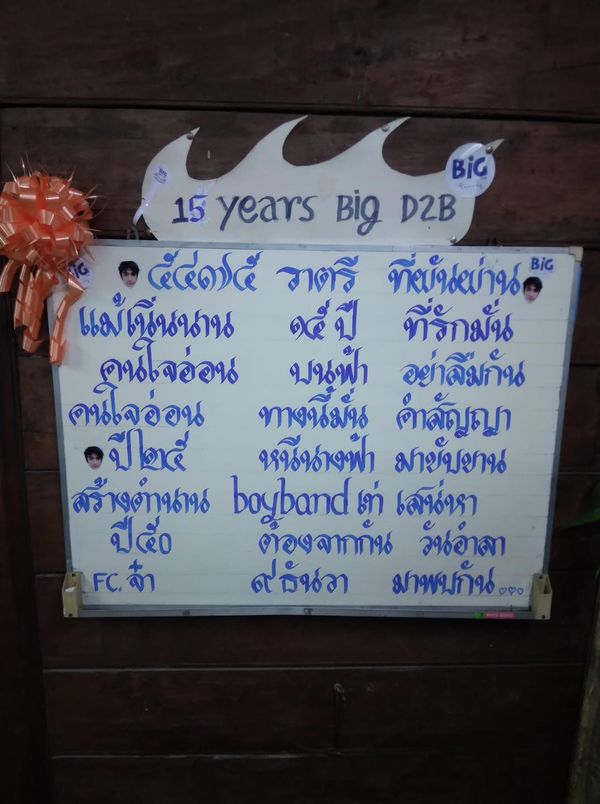 BiG
15 years Big D2B
BiG BiG
๕๔๗๕ ราตรี ที่ผันผ่าน
แม้เนิ่นนาน ๑๕ ปี ที่รักมั่น
คนใจอ่อน บนฟ้า อย่าลืมกัน
คนใจอ่อน ทางนี้มั่น คำสัญญา
ปี ๒๕ หนีนางฟ้า มาขับขาน
สร้างตำนาน boyband เท่ เสน่หา
ปี ๕๐ ต้องจากกัน วันอำลา
FC. จ๋า ๙ ธันวา มาพบกัน...